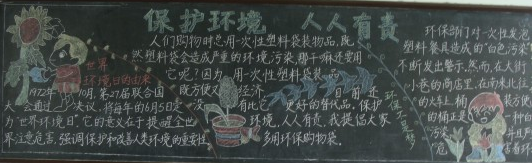 保护环境 人人有责
世界
环境日的由来
1972年 10月,第27届联合国
大会通过 决议,将每年的6月5日定
为“世界环境日”,它的意义在于提醒全世
界注意危害,强调保护和改善人类环境的重要性。
人们购物时总用一次性塑料袋装物品,既
然塑料袋会造成严重的环境污染,那干嘛还要用
它呢?因为,用一次性塑料袋装品
既方便又 经济 目前还
没有比它 更好的替代品,保护
环境,人人有责,我提倡大家
多用环保购物袋。
环保不是梦
环保部门对一次性发泡
塑料餐具造成的“白色污染”
不断发出警示,然而,在大街
小巷的商店里,在南来北往
的火车上 桶装方
的桶正是 种白
污染
危害